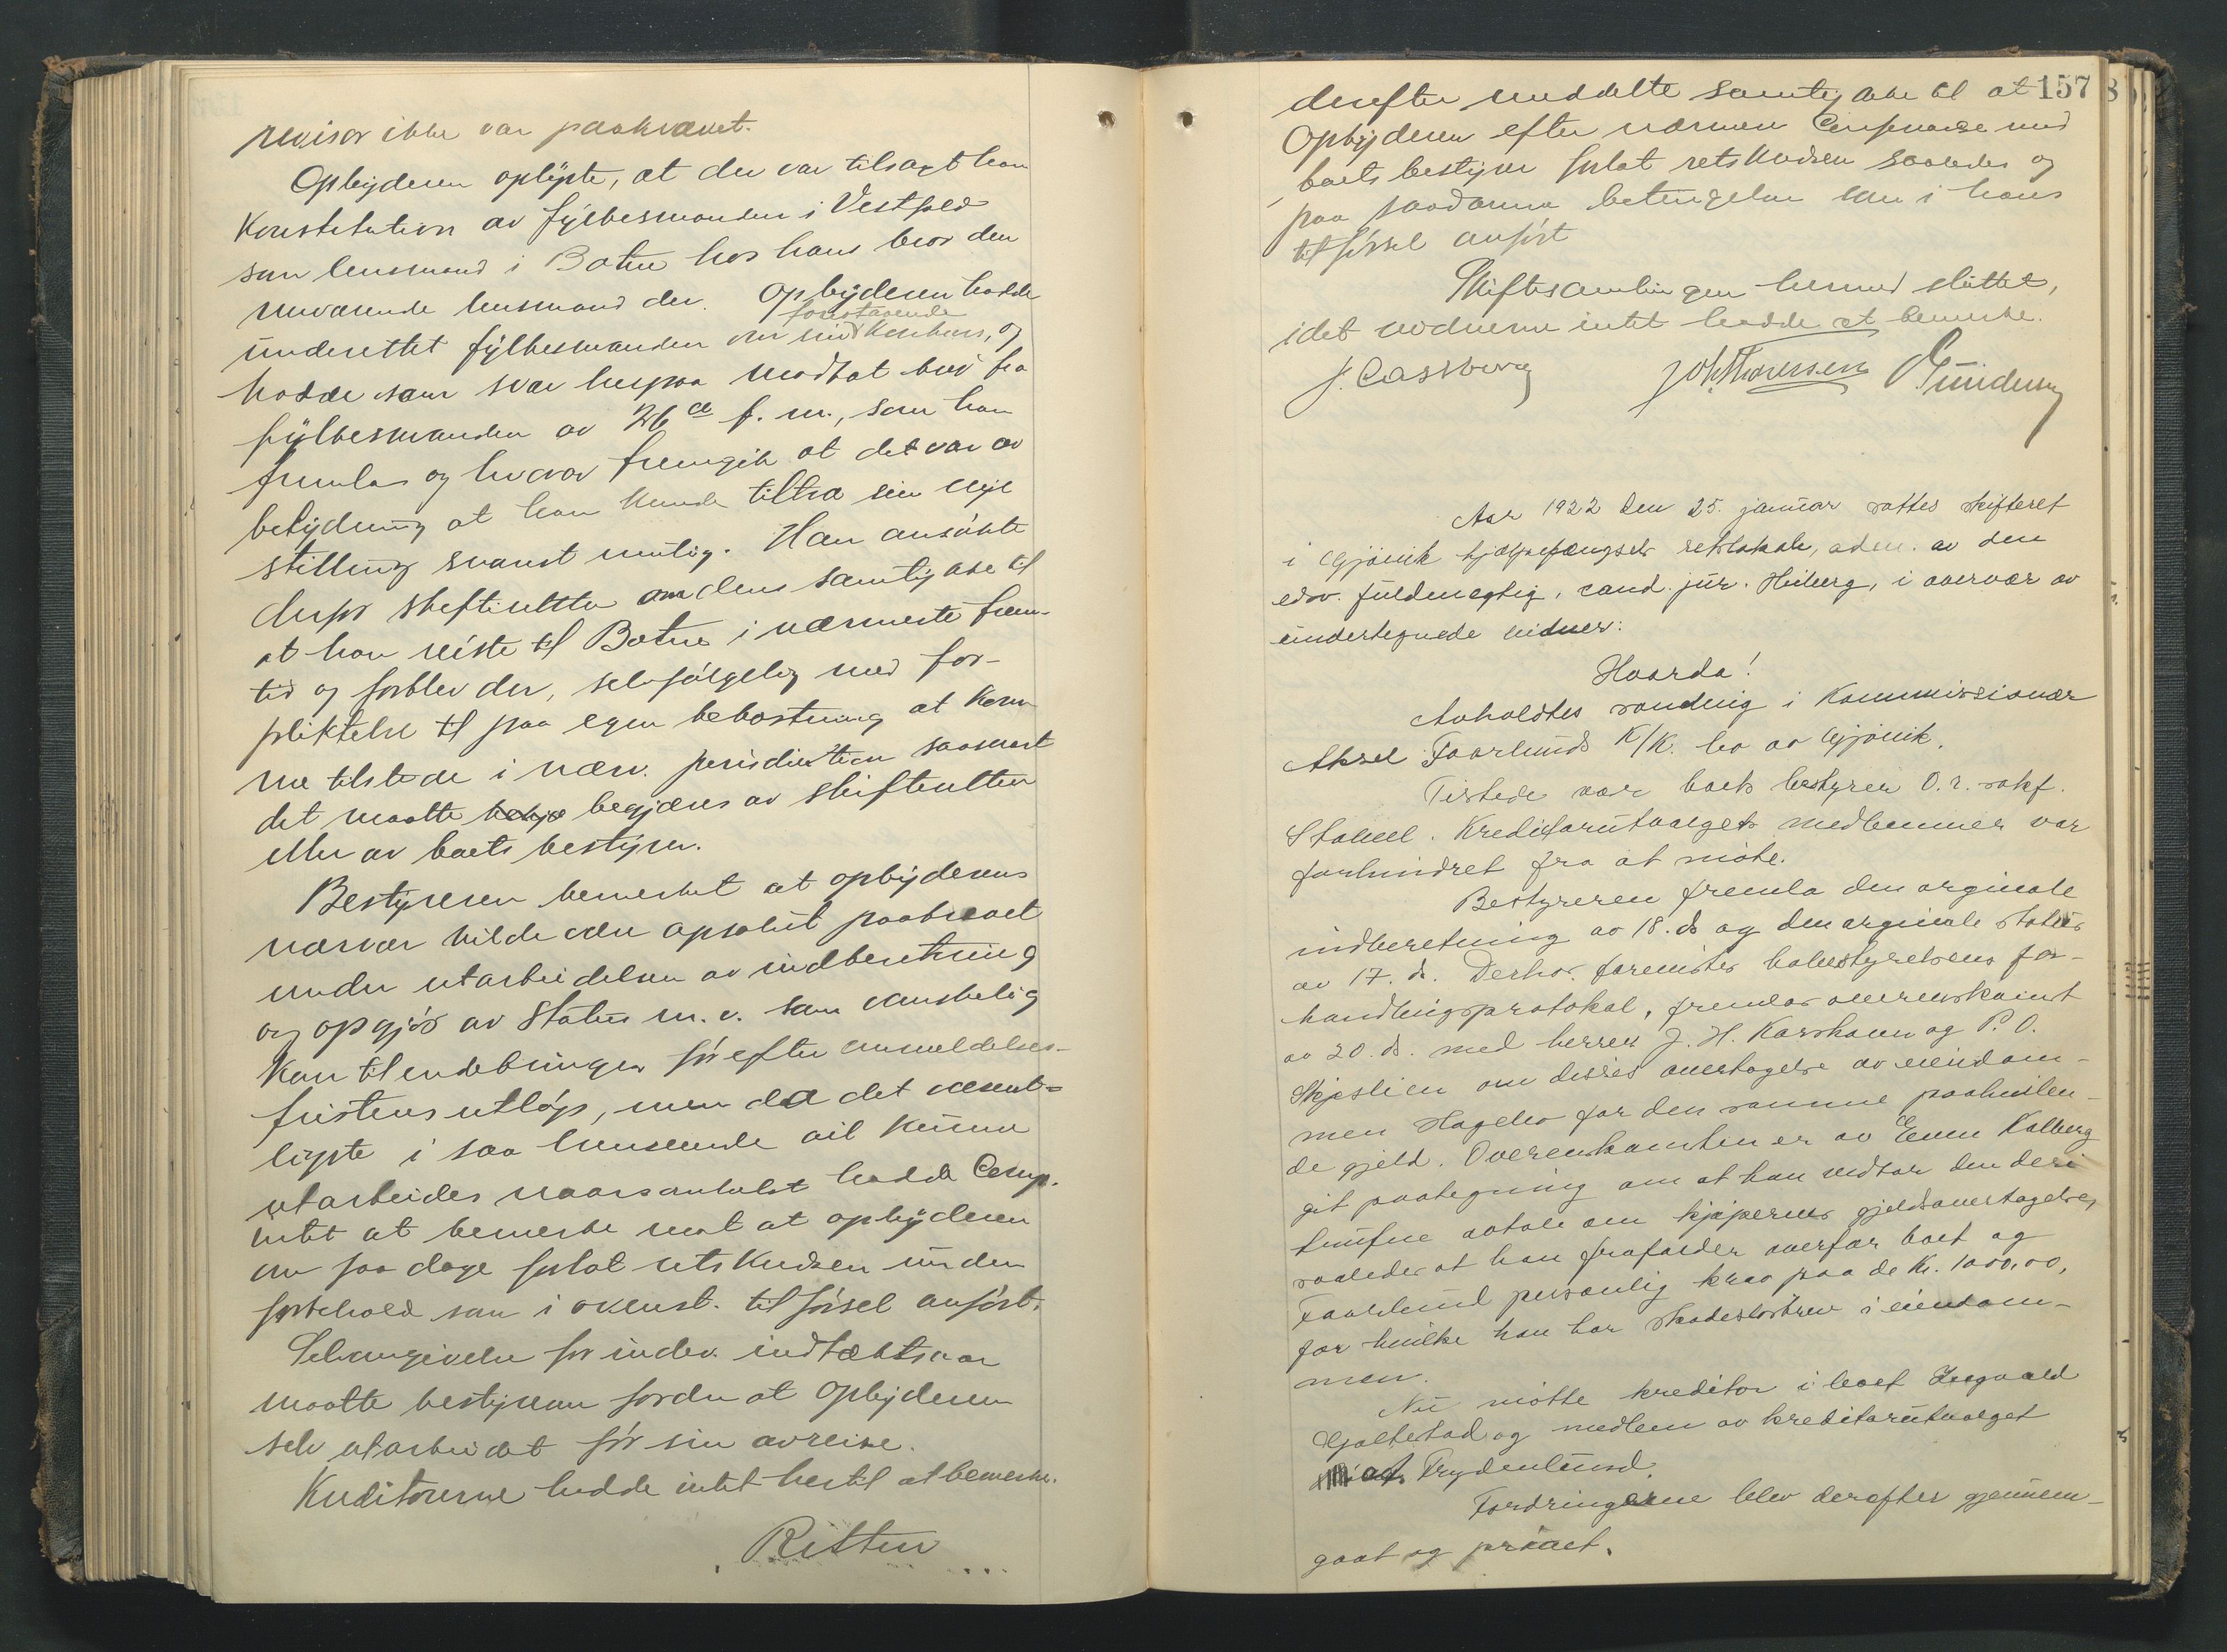 revisor ikke var paakrævet.
Opbyderen oplyste, at der var tilsagt ham
Konstitution av fylkesmanden i Vestfold
som lensmand i Botne hos hans bror den
nuværende lensmand der. Opbyderen hadde
foretagende
underrettet fylkesmanden om sin konkurs, og
hadde som svar herpaa modtat brev fra
fylkesmanden av 26de f. m., som han
fremla og hvorav fremgik at det var av
betydning at han kunde tiltræ sin nye
stilling snarest mulig. Han ansökte
derfor skifteretten om dens samtykke til
at han reiste til Botne i nærmeste frem-
tid og forblev der, selvfølgelig med for-
pliktelse til paa egen bekostning at kom-
me tilstede i nærv. jurisdiktion saasnart
det maatte begjæres av skifteretten
eller av boets bestyrer.
Bestyreren bemerket at opbyderens
nærvær vilde være absolut paakrævet
under utarbeidelsen av indberetning
og opgjør av Status m. v. som vanskelig
kan tilendebringes før efter anmeldelses-
fristens utløp, men da det væsent-
ligste i saa henseende vil kunne
utarbeides naarsomhelst hadde Comp.
intet at bemerke mot at opbyderen
om faa dage forlot retskredsen under
forbehold som i ovenst. tilførsel anført.
Selvangivelse for indev. indtægtsaar
maatte bestyreren fordre at opbyderen
selv utarbeidet før sin avreise.
Kreditorerne hadde intet hertil at bemerke.
Retten
157
derefter meddelte samtykke til at
Opbyderen efter nærmere Conferance med
boets bestyrer forlot retskredsen saaledes og
paa saadanne betingelser som i hans
tilførsel anført
Skiftesamlingen hermed sluttet,
idet vidnerne intet hadde at bemerke.
J. Cassberg Joh. Thoresen
Aar 1922 den 25. januar sattes skifteret
i Gjövik hjælpefængsels retslokale, adm. av den
edsv. fuldmegtig, cand. jur. Heiberg, i overvær av
undertegnede vidner:
Hvorda!
Avholdtes samling i Kommissionær
Aksel Faarlunds K/K. bo av Gjövik.
Tilstede var boets bestyrer O. r. sakf.
Stabell. Kreditorutvalgets medlemmer var
forhindret fra at möte.
Bestyreren fremla den orginale
indberetning av 18. ds og den orginale status
av 17. ds. Derhos forevistes bobestyrelsens for-
handlingsprotokol, fremlas overenskomst
av 20. ds. med herrer J. H. Karshaun og P. O.
Skjeslien om disses overtagelse av eiendom-
men Hagebo for den samme paahvilen-
de gjeld. Overenskomsten er av Even Kolberg
git paategning om at han vedtar den deri
trufne avtale om kjøpernes gjeldsovertagelse,
saaledes at han frafalder overfor boet og
Faarlund personlig krav paa de Kr. 1000,00,
for hvilke han har skadeslösbrev i eiendom-
men.
Nu mötte kreditor i boet Ingvald
Gjeltestad og medlem av kreditorutvalget
Frydenlund.
Fordringerne blev derefter gjennem-
gaat og prövet.